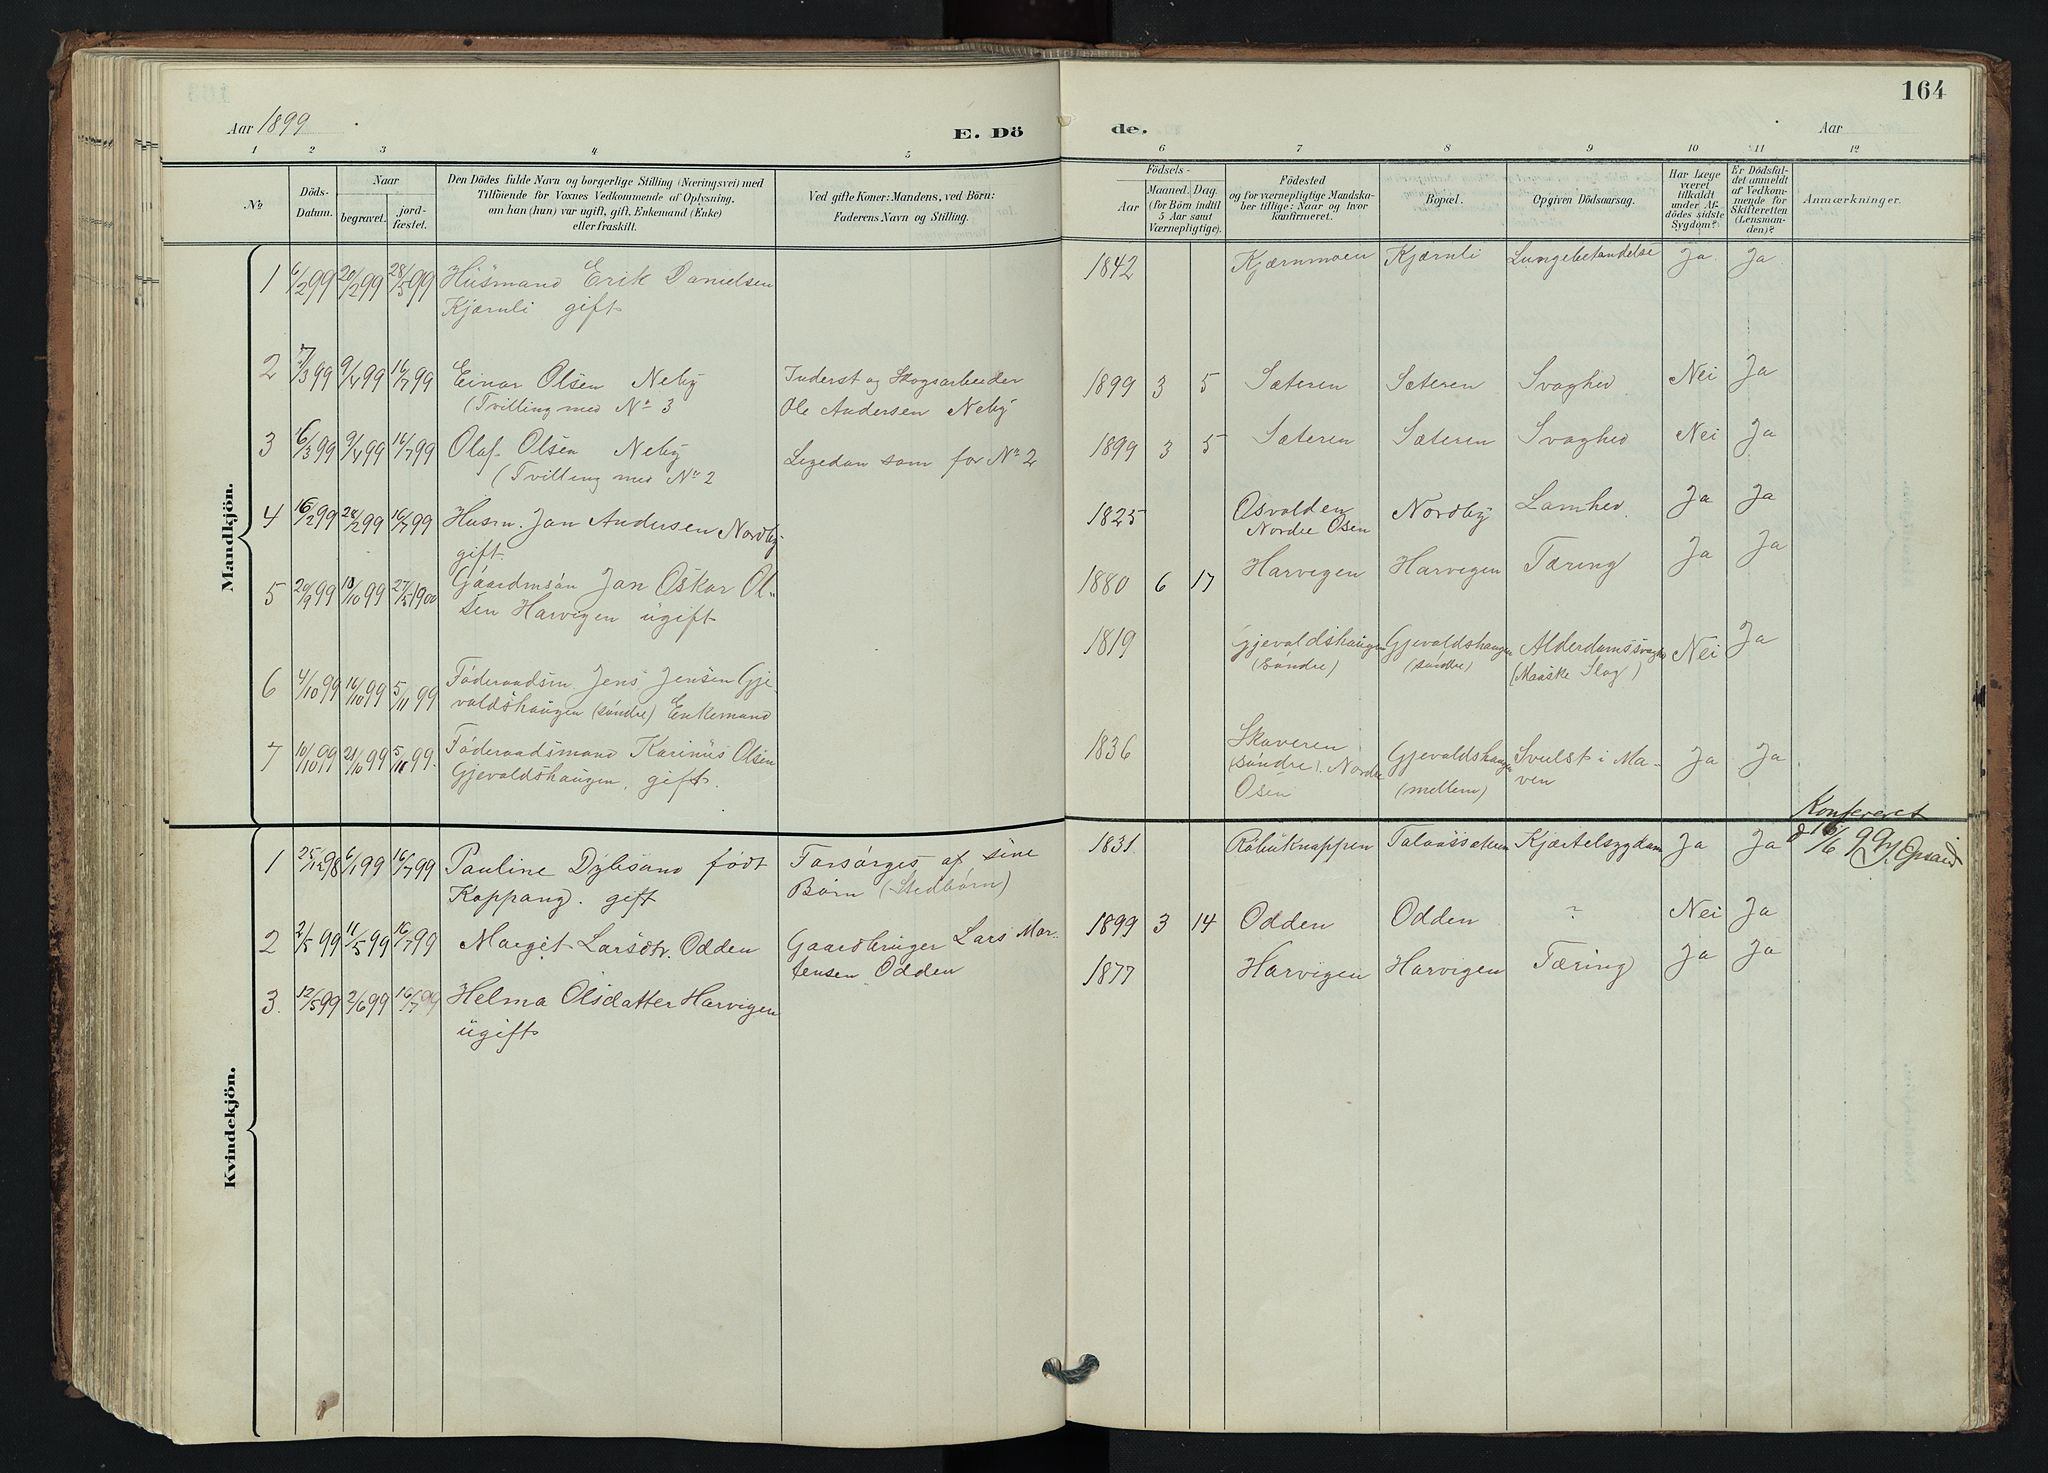 164
Aar 1899
E. Dö
de.
Aar
1 2 3 4 5 6 7 8 9 10 11 12
№
Döds-
Datum.
Naar
begravet.
jord-
fæstet.
Den Dödes fulde Navn og borgerlige Stilling (Næringsvei) med
Tilföiende for Voxnes Vedkommende af Oplysning,
om han (hun) var ugift, gift, Enkemand (Enke)
eller fraskilt.
Ved gifte Koner: Mandens, ved Börn:
Faderens Navn og Stilling.
Födsels-
Aar
Maaned. Dag.
(for Börn indtil
5 Aar samt
Værnepligtige).
Födested
og for værnepligtige Mandska-
ber tillige: Naar og hvor
konfirmeret.
Bopæl.
Opgiven Dödsaarsag.
Har Læge
været
tilkaldt
under Af-
dödes sidste
Sygdom?
Er Dödsfal-
det anmeldt
af Vedkom-
mende for
Skifteretten
(Lensman-
den)?
Anmærkninger.
Mandkjön.
1 6/2 99 20/2 99 28/5 99 Husmand Erik Danielsen 1842 Kjærnmoen Kjærnli Lungebetændelse Ja Ja
Kjærnli gift
2 7/3 99 9/4 99 16/7 99 Einar Olsen Neby Inderst og Skogsarbeider 1899 3 5 Sæteren Sæteren Svaghed Nei Ja
(Tvilling med No 3 Ole Andersen Neby
3 16/3 99 9/4 99 16/7 99 Olaf Olsen Neby Ligedan som for No 2 1899 3 5 Sæteren Sæteren Svaghed Nei Ja
(Tvilling med No 2
4 16/2 99 28/2 99 16/7 99 Husm. Jon Andersen Nordby 1825 Osvolden Nordby Lamhed. Ja Ja
gift. Nordre Osen
5 20/9 99 10/10 99 27/5 1900 Gaardmsøn Jon Oskar Ol- 1880 6 17 Harvigen Harvigen Tæring Ja Ja
sen Harvigen ugift
6 4/10 99 16/10 99 5/11 99 Føderaadsm. Jens Jensen Gje- 1819 Gjevaldshaugen Gjevaldshaugen Alderdomssvaghed Nei Ja
valdshaugen (søndre) Enkemand (søndre) (søndre) (Maaske Slag)
7 10/10 99 21/10 99 5/11 99. Føderaadsmand Karinus Olsen 1836 Skaveren Gjevaldshaugen Svulst i Ma- Ja Ja
Gjevaldshaugen, gift. (søndre). Nordre (mellem) ven
Osen
Kvindekjön.
Konfereret
1 25/12 98 6/1 99 16/7 99 Pauline Dybsand født Forsørges af sine 1831. Taloassæteren Kjertelsygdom Ja Ja d 16/6 99
Koppang. gift Børn (Stedbørn)
2 2/5 99 11/5 99 16/7 99 Margit Larsdtr. Odden Gaardbruger Lars Mor- 1899 3 14 Odden Odden ? Nei Ja
tensen Odden
3. 12/5 99 2/6 99 16/7 99 Helma Olsdatter Harvigen 1877 Harvigen Harvigen Tæring Ja Ja
ugift